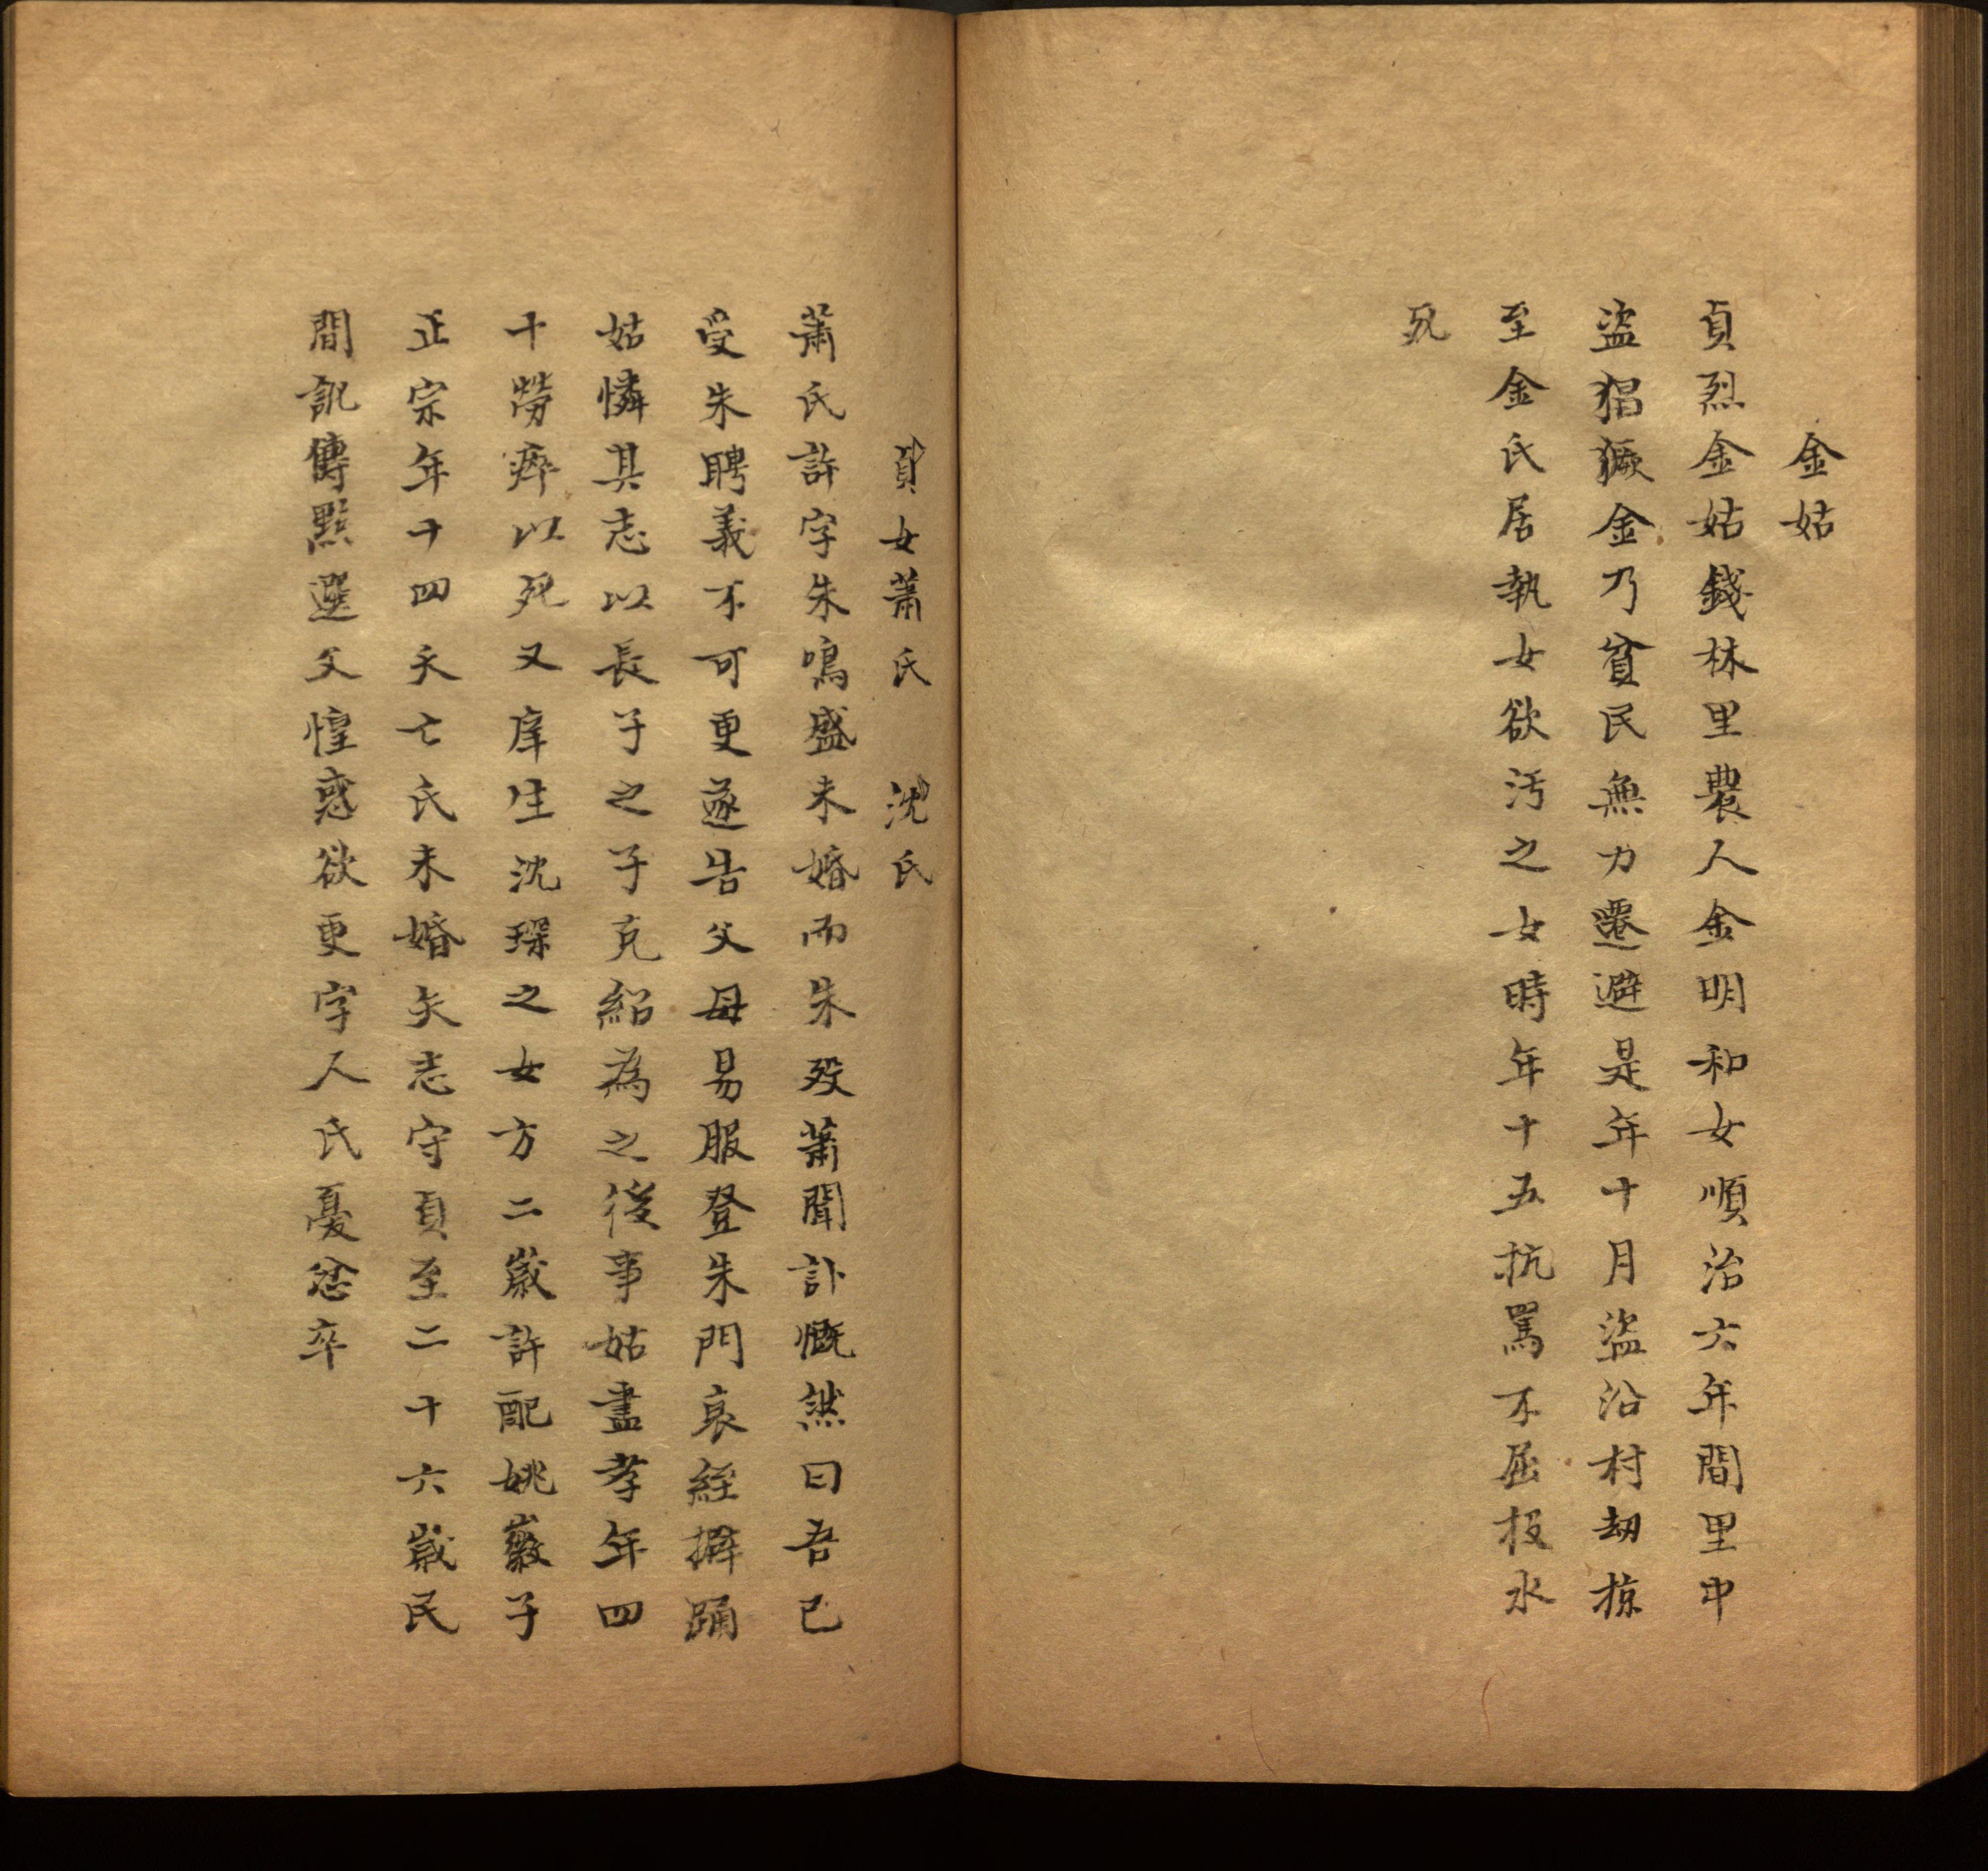 金姑
貞烈金姑錢林里農人金明和女順治六年間里中
盜猖獗金乃貧民無力遷避是年十月盜沿村刼掠
至金氏居執女欲汚之女時年十五抗罵不屈投水
死
貞女蕭氏　沈氏
蕭氏許字朱鳴盛未婚而朱歿蕭聞訃慨然曰吾已
受朱聘義不可更遂告父母易服登朱門哀絰擗踊
姑憐其志以長子之子克紹為之後事姑盡孝年四
十勞瘁以死又庠生沈琛之女方二歲許配姚巖子
正宗年十四夭亡氏未婚矢志守貞至二十六歲民
間訛傳點選父惶惑欲更字人氏憂忿卒